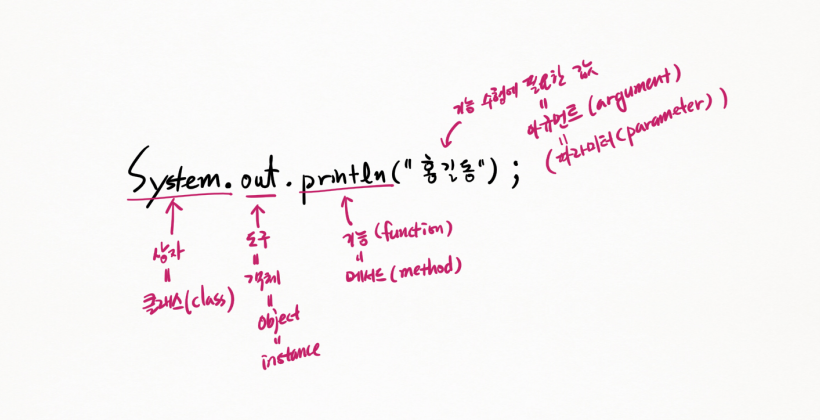 기능 수행에 필요한 값
"
아규먼트 (argument)
"
(파라미터(parameter))
System.out.println("홍길동");
상자
"
클래스(class)
도구
"
객체
"
object
"
instance
기능 (function)
"
메서드 (method)